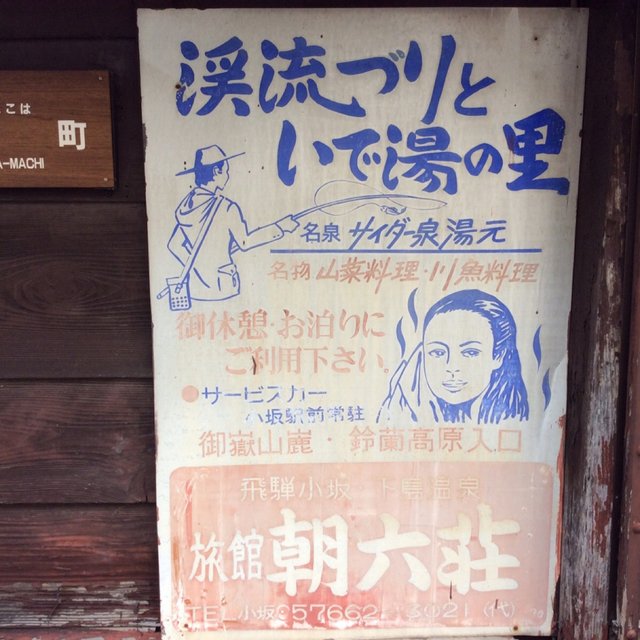 こは
町
A-MACHI
渓流づりと
いで湯の里
名泉 サイダー泉湯元
名物 山菜料理・川魚料理
御休憩・お泊りに
ご利用下さい。
●サービスカー
小坂駅前常駐
御嶽山麓・鈴蘭高原入口
飛騨小坂 下島温泉
旅館 朝六荘
TEL 小坂 057662-3021(代)